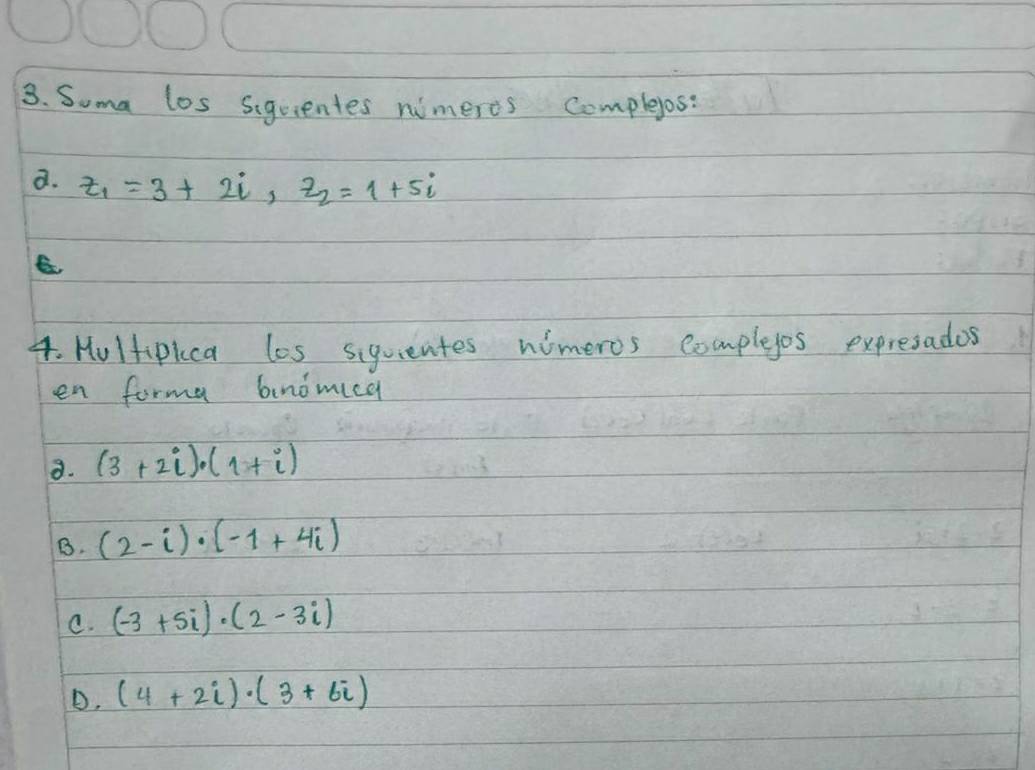 3. Suma los siguientes números complejos:
a. z₁ = 3 + 2i, z₂ = 1 + 5i
4. Multiplica los siguientes números complejos expresados
en forma binómica
a. (3 + 2i)·(1 + i)
B. (2 - i)·(-1 + 4i)
C. (-3 + 5i)·(2 - 3i)
D. (4 + 2i)·(3 + 6i)